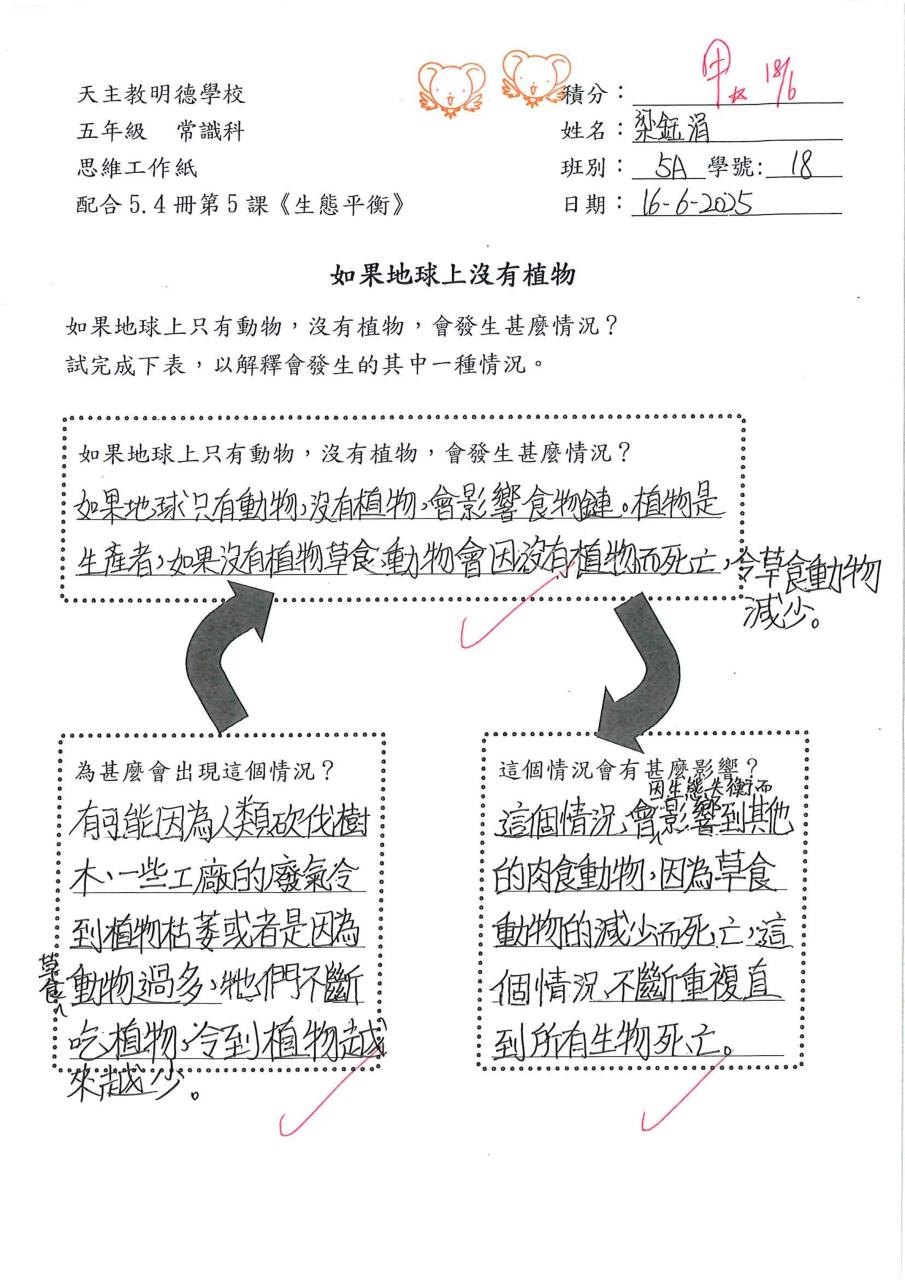 天主教明德學校
五年級　常識科
思維工作紙
配合5.4冊第5課《生態平衡》
積分：甲 18/6
姓名：梁鈺涓
班別：5A 學號: 18
日期：16-6-2025
如果地球上沒有植物
如果地球上只有動物，沒有植物，會發生甚麼情況？
試完成下表，以解釋會發生的其中一種情況。
如果地球上只有動物，沒有植物，會發生甚麼情況？
如果地球只有動物，沒有植物，會影響食物鏈。植物是
生產者，如果沒有植物草食動物會因沒有植物而死亡，令草食動物
減少。
為甚麼會出現這個情況？
有可能因為人類砍伐樹
木、一些工廠的廢氣令
到植物枯萎或者是因為
草食動物過多，牠們不斷
吃植物，令到植物越
來越少。
這個情況會有甚麼影響？
這個情況，會因生態失衡而影響到其他
的肉食動物，因為草食
動物的減少而死亡，這
個情況，不斷重複直
到所有生物死亡。